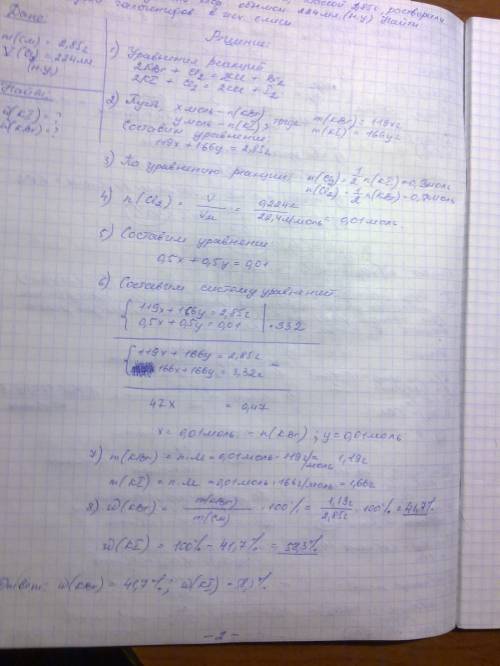 массой 2,85г растворили
объемом 224мл (н.у) Найти
галогенидов в исх. смеси
Дано:
m(см) = 2,85г
V(Cl2) = 224мл
(н.у)
Найти:
ω(KI) = ?
ω(KBr) = ?
Решение:
1) Уравнения реакций
2KBr + Cl2 = 2KCl + Br2
2KI + Cl2 = 2KCl + I2
2) Пусть x моль - n(KBr)
y моль - n(KI), тогда m(KBr) = 119x г
m(KI) = 166y г
Составим уравнение:
119x + 166y = 2,85г
3) По уравнению реакции: n(Cl2) = 1/2 n(KI) = 0,5моль
n(Cl2) = 1/2 n(KBr) = 0,5моль
4) n(Cl2) = V/Vм = 0,224л/22,4л/моль = 0,01моль.
5) Составим уравнение
0,5x + 0,5y = 0,01
6) Составим систему уравнений
{ 119x + 166y = 2,85г
0,5x + 0,5y = 0,01 | ·332
{ 119x + 166y = 2,85г
166x + 166y = 3,32г -
47x = 0,47
x = 0,01моль - n(KBr) ; y = 0,01моль
7) m(KBr) = n·M = 0,01моль · 119г/моль = 1,19г
m(KI) = n·M = 0,01моль · 166г/моль = 1,66г
8) ω(KBr) = m(KBr)/m(см) · 100% = 1,19г/2,85г · 100% = 41,7%
ω(KI) = 100% - 41,7% = 58,3%
Ответ: ω(KBr) = 41,7% ; ω(KI) =
- 2 -